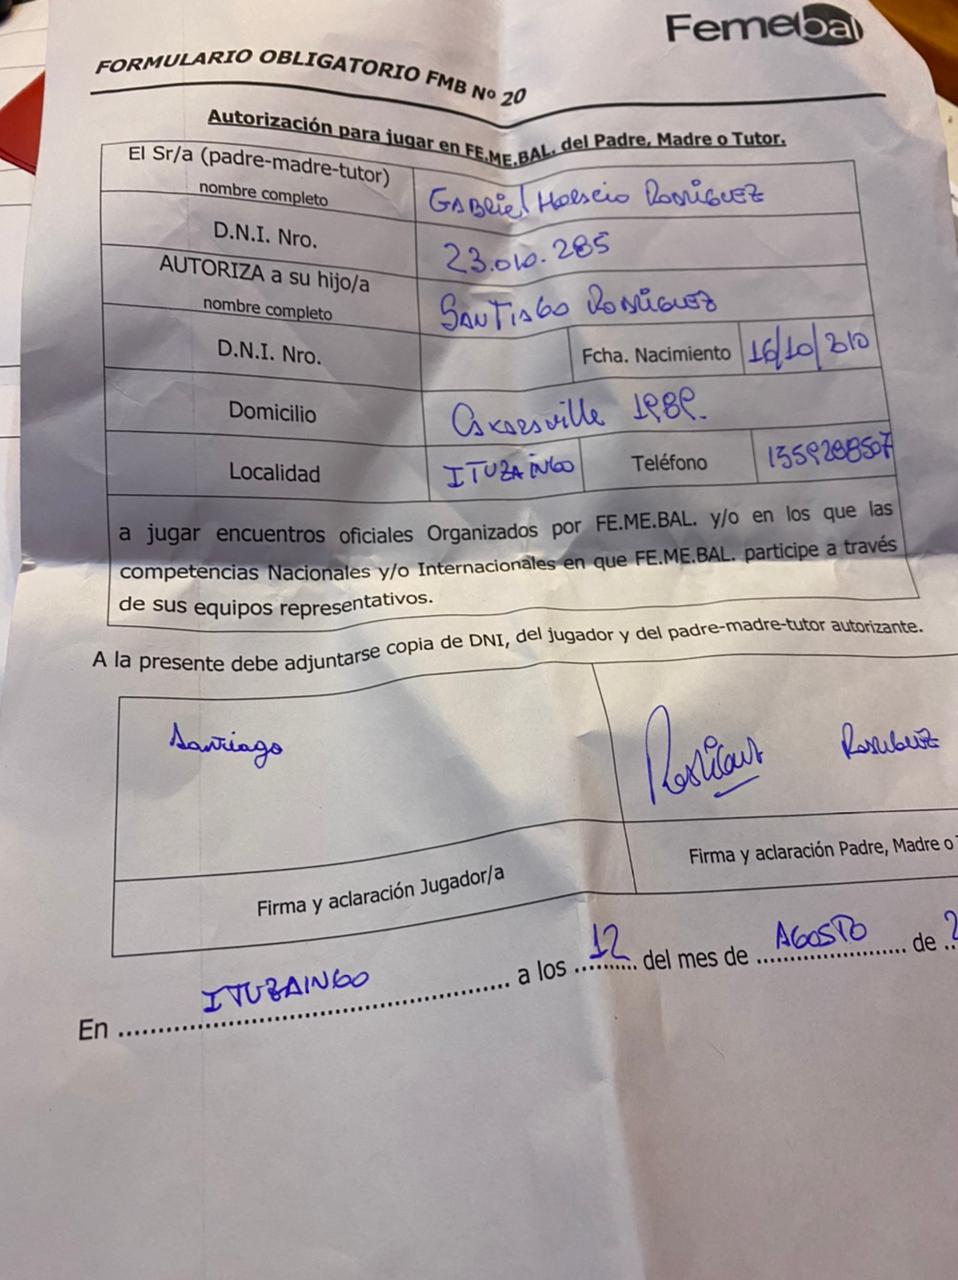 Femebal
FORMULARIO OBLIGATORIO FMB Nº 20
Autorización para jugar en FE.ME.BAL. del Padre, Madre o Tutor.
El Sr/a (padre-madre-tutor)
nombre completo
GABRIEL HORACIO RODRIGUEZ
D.N.I. Nro.
23.010.285
AUTORIZA a su hijo/a
nombre completo
SANTIAGO RODRIGUEZ
D.N.I. Nro.
Fcha. Nacimiento 16/10/2010
Domicilio
1989.
Localidad ITUZAINGO Teléfono 1559288507
a jugar encuentros oficiales Organizados por FE.ME.BAL. y/o en los que las
competencias Nacionales y/o Internacionales en que FE.ME.BAL. participe a través
de sus equipos representativos.
A la presente debe adjuntarse copia de DNI, del jugador y del padre-madre-tutor autorizante.
Santiago
RODRIGUEZ
Firma y aclaración Jugador/a
Firma y aclaración Padre, Madre o
En ITUZAINGO a los 12 del mes de AGOSTO de 2